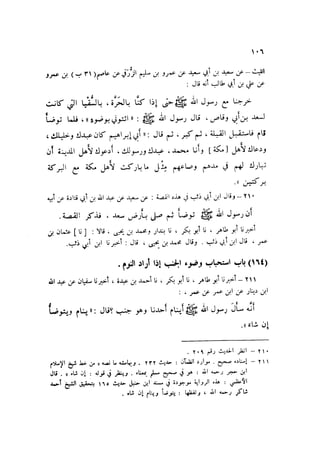 ١٠٦
الليث – عن سعيد بن أبي سعيد عن عمرو بن سليم الزرقي عن عاصم (٣١ ب) بن عمرو
عن علي بن أبي طالب أنه قال :
خرجنا مع رسول الله ﷺ حتى إذا كنا بالحرة ، بالسقيا التي كانت
لسعد بن أبي وقاص ، قال رسول الله ﷺ : « ائتوني بوضوء » ، فلما توضأ
قام فاستقبل القبلة ، ثم كبر ، ثم قال : « أبي إبراهيم كان عبدك وخليلك ،
ودعاك لأهل [ مكة ] وأنا محمد ، عبدك ورسولك ، أدعوك لأهل المدينة أن
تبارك لهم في مدهم وصاعهم مثل ما باركت لأهل مكة مع البركة
بركتين » .
٢١٠ – وقال ابن أبي ذئب في هذه القصة : عن سعيد عن عبد الله بن أبي قتادة عن أبيه
أن رسول الله ﷺ توضأ ثم صلى بأرض سعد ، فذكر القصة .
أخبرنا أبو طاهر ، نا أبو بكر ، نا بندار ومحمد بن يحيى ، قالا : [ نا ] عثمان بن
عمر ، قال ابن أبي ذئب . وقال محمد بن يحيى ، قال : أخبرنا ابن أبي ذئب .
(١٦٤) باب استحباب وضوء الجنب إذا أراد النوم .
٢١١ – أخبرنا أبو طاهر ، نا أبو بكر ، نا أحمد بن عبدة ، أخبرنا سفيان عن عبد الله
ابن دينار عن ابن عمر عن عمر :
أنه سأل رسول الله ﷺ أينام أحدنا وهو جنب ؟ قال : « ينام ويتوضأ
إن شاء » .
٢١٠ – انظر الحديث رقم ٢٠٩ .
٢١١ – إسناده صحيح . موارد الظمآن : حديث ٢٣٢ . وبهامشه ما نصه : من خط شيخ الإسلام
ابن حجر رحمه الله : هو في صحيح مسلم بمعناه . وينظر في قوله : إن شاء . قال
الأعظمي : هذه الرواية موجودة في مسند ابن حنبل حديث ١٦٥ بتحقيق الشيخ أحمد
شاكر رحمه الله ، ولفظها : يتوضأ وينام إن شاء .